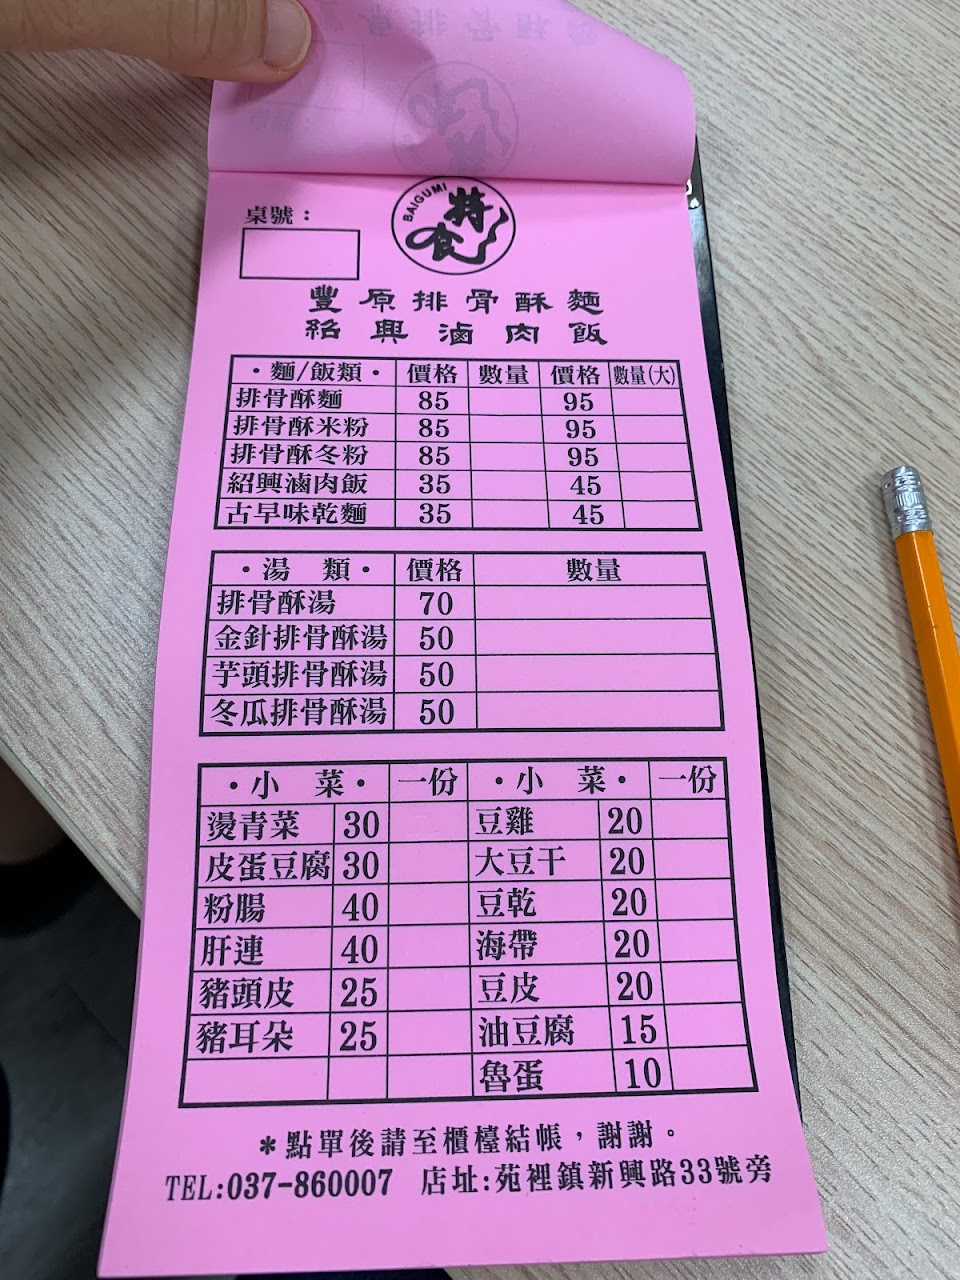 桌號：
BAIGUMI
特食
豐原排骨酥麵
紹興滷肉飯
・麵/飯類・ 價格 數量 價格 數量(大)
排骨酥麵 85 95
排骨酥米粉 85 95
排骨酥冬粉 85 95
紹興滷肉飯 35 45
古早味乾麵 35 45
・湯 類・ 價格 數量
排骨酥湯 70
金針排骨酥湯 50
芋頭排骨酥湯 50
冬瓜排骨酥湯 50
・小 菜・ 一份 ・小 菜・ 一份
燙青菜 30 豆雞 20
皮蛋豆腐 30 大豆干 20
粉腸 40 豆乾 20
肝連 40 海帶 20
豬頭皮 25 豆皮 20
豬耳朵 25 油豆腐 15
魯蛋 10
＊點單後請至櫃檯結帳，謝謝。
TEL:037-860007 店址:苑裡鎮新興路33號旁